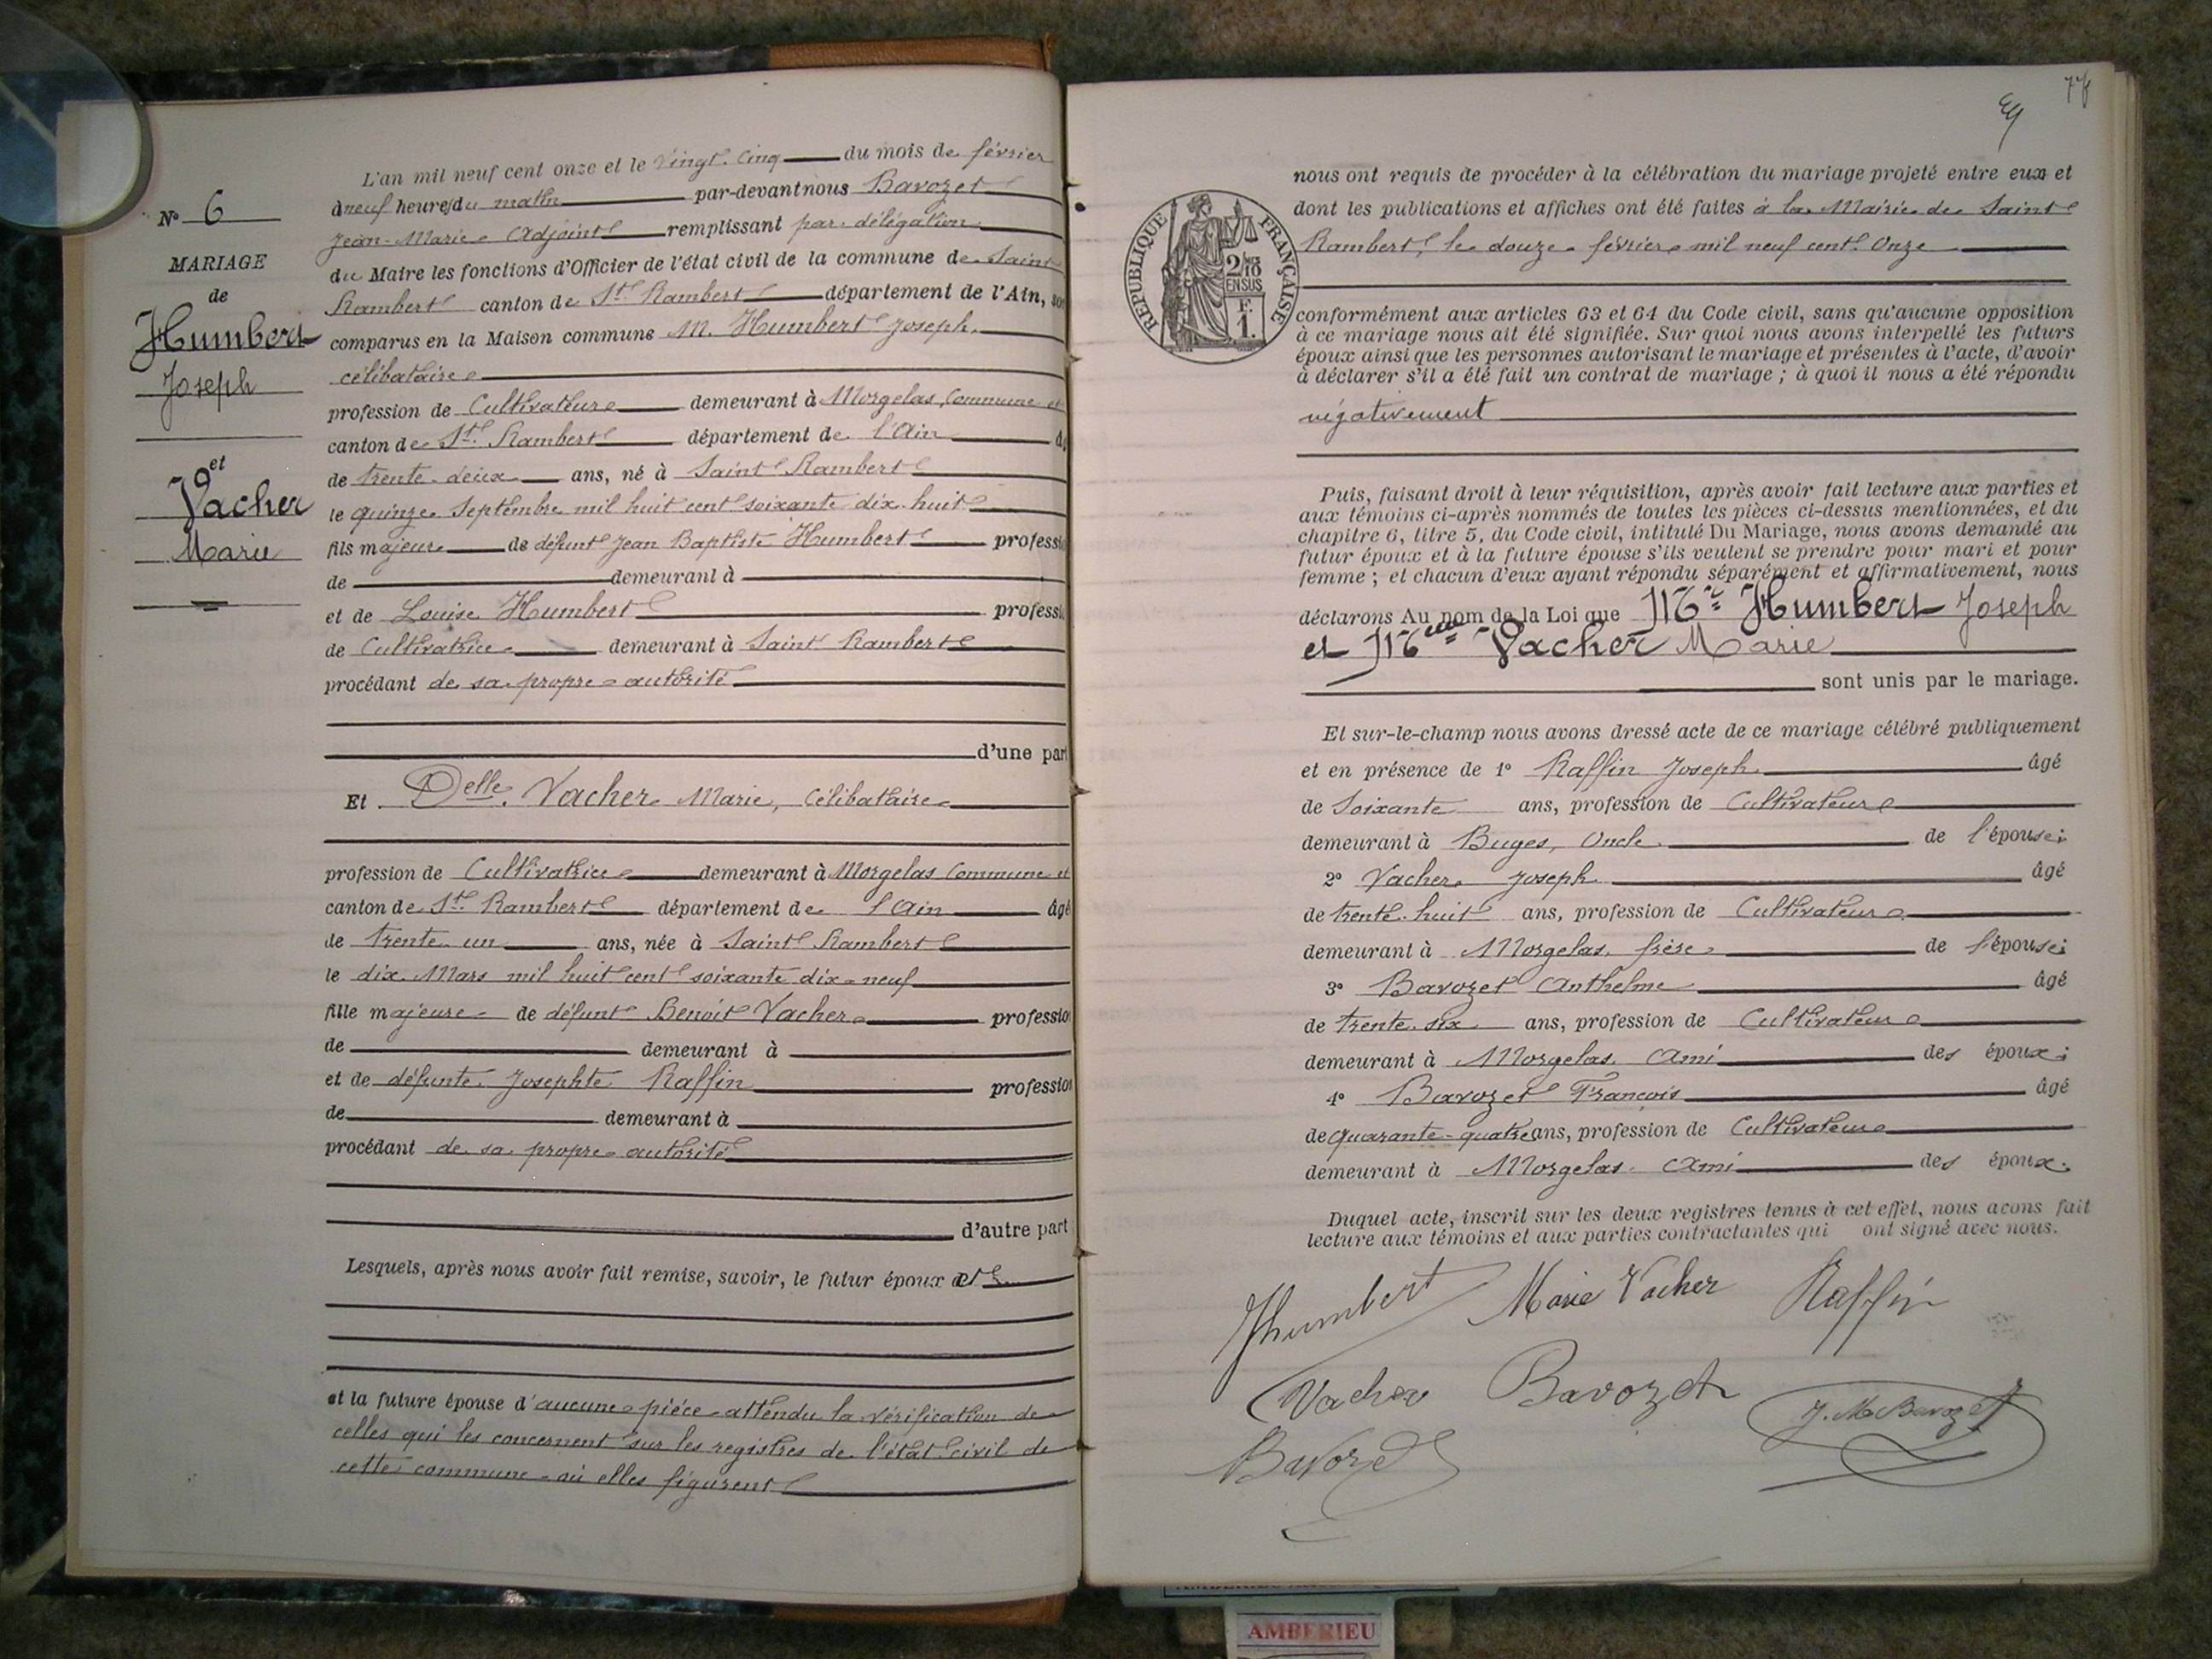 N° 6
MARIAGE
de
Humbert
Joseph
et
Vacher
Marie
L'an mil neuf cent onze et le vingt-cinq du mois de février
à neuf heures du matin par-devant nous Bavozet
Jean-Marie Adjoint remplissant par délégation
du Maire les fonctions d'Officier de l'état civil de la commune de Saint
Rambert canton de St Rambert département de l'Ain,
comparus en la Maison commune M. Humbert Joseph,
célibataire
profession de Cultivateur demeurant à Morgelas, Commune et
canton de St Rambert département de l'Ain
de trente-deux ans, né à Saint Rambert
le quinze Septembre mil huit cent soixante dix-huit
fils majeur de défunt Jean Baptiste Humbert professio
de demeurant à
et de Louise Humbert professi
de Cultivatrice demeurant à Saint Rambert
procédant de sa propre autorité
d'une part
Et Delle Vacher Marie, célibataire
profession de Cultivatrice demeurant à Morgelas Commune et
canton de St Rambert département de l'Ain âgé
de trente-un ans, née à Saint Rambert
le dix Mars mil huit cent soixante dix-neuf
fille majeure de défunt Benoît Vacher profession
de demeurant à
et de défunte Josephte Raffin profession
de demeurant à
procédant de sa propre autorité
d'autre part
Lesquels, après nous avoir fait remise, savoir, le futur époux
et la future épouse d'aucune pièce attendu la vérification de
celles qui les concernent sur les registres de l'état civil de
cette commune où elles figurent
nous ont requis de procéder à la célébration du mariage projeté entre eux et
dont les publications et affiches ont été faites à la Mairie de Saint
Rambert, le douze février mil neuf cent onze
RÉPUBLIQUE FRANÇAISE
2/10
EN SUS
F.
1.
conformément aux articles 63 et 64 du Code civil, sans qu'aucune opposition
à ce mariage nous ait été signifiée. Sur quoi nous avons interpellé les futurs
époux ainsi que les personnes autorisant le mariage et présentes à l'acte, d'avoir
à déclarer s'il a été fait un contrat de mariage ; à quoi il nous a été répondu
négativement
Puis, faisant droit à leur réquisition, après avoir fait lecture aux parties et
aux témoins ci-après nommés de toutes les pièces ci-dessus mentionnées, et du
chapitre 6, titre 5, du Code civil, intitulé Du Mariage, nous avons demandé au
futur époux et à la future épouse s'ils veulent se prendre pour mari et pour
femme ; et chacun d'eux ayant répondu séparément et affirmativement, nous
déclarons Au nom de la Loi que Mr Humbert Joseph
et Melle Vacher Marie
sont unis par le mariage.
Et sur-le-champ nous avons dressé acte de ce mariage célébré publiquement
et en présence de 1° Raffin Joseph âgé
de Soixante ans, profession de Cultivateur
demeurant à Buges, Oncle de l'épouse;
2° Vacher Joseph âgé
de trente-huit ans, profession de Cultivateur
demeurant à Morgelas, frère de l'épouse;
3° Bavozet Anthelme âgé
de trente-six ans, profession de Cultivateur
demeurant à Morgelas, Ami des époux;
4° Bavozet François âgé
de quarante-quatre ans, profession de Cultivateur
demeurant à Morgelas, Ami des époux.
Duquel acte, inscrit sur les deux registres tenus à cet effet, nous avons fait
lecture aux témoins et aux parties contractantes qui ont signé avec nous.
Jhumbert Marie Vacher Raffin
Vacher Bavozet J. M Bavozet
Bavozet
AMBERIEU